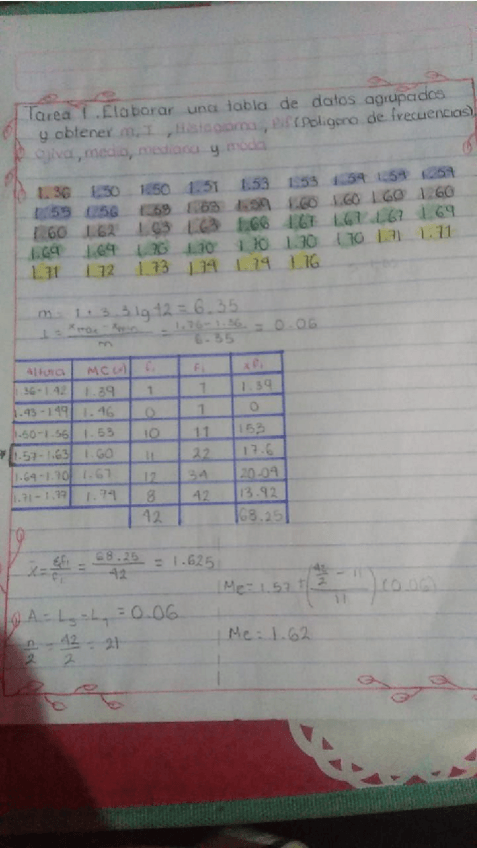 Tarea 1. Elaborar una tabla de datos agrupados
y obtener m, I, Histograma, P.f (Poligono de frecuencias),
Ojiva, media, mediana y moda
1.36 1.50 1.50 1.51 1.53 1.53 1.54 1.54 1.54
1.55 1.56 1.60 1.60 1.60 1.60
1.60 1.62 1.63 1.63 1.66 1.67 1.67 1.67 1.69
1.69 1.69 1.70 1.70 1.70 1.70 1.70 1.71 1.71
1.71 1.72 1.73 1.74 1.74 1.76
m = 1+3.3 lg 42 = 6.35
I = xmax - xmin / m = 1.76-1.36 / 6.35 = 0.06
Altura MC(x) fi Fi xfi
1.36-1.42 1.39 1 1 1.39
1.43-1.49 1.46 0 1 0
1.50-1.56 1.53 10 11 15.3
1.57-1.63 1.60 11 22 17.6
1.64-1.70 1.67 12 34 20.04
1.71-1.77 1.74 8 42 13.92
42 68.25
= 68.25 / 42 = 1.625
Me = 1.57 + (42/2 - 11 / 11) (0.06)
A = Ls - Li = 0.06
n/2 = 42/2 = 21
Me = 1.62